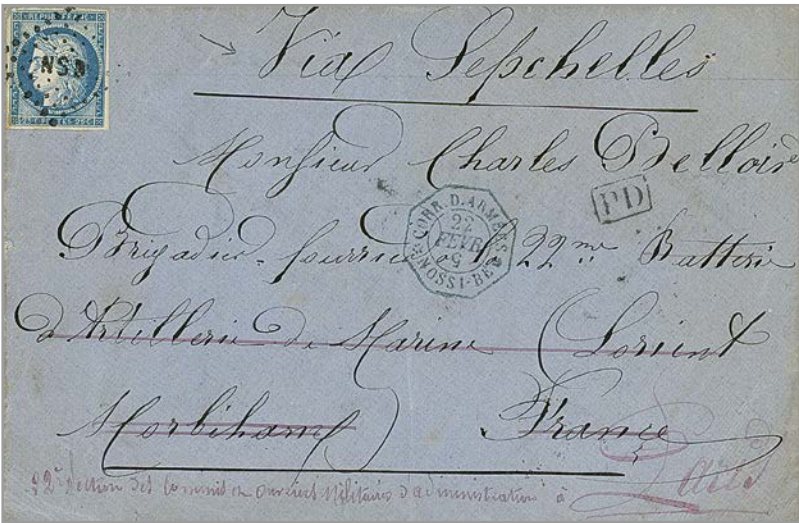 REPUB FRANC
NSN
Via Seychelles
Monsieur Charles Belloir
PD
CORR. D. ARMÉES
22
FEVR
NOSSI-BÉ
Brigadier-fourrier 22me Batterie
d'Artillerie de Marine (Lorient
Morbihan) France
22e Section des Commis et ouvriers Militaires d'administration à Paris